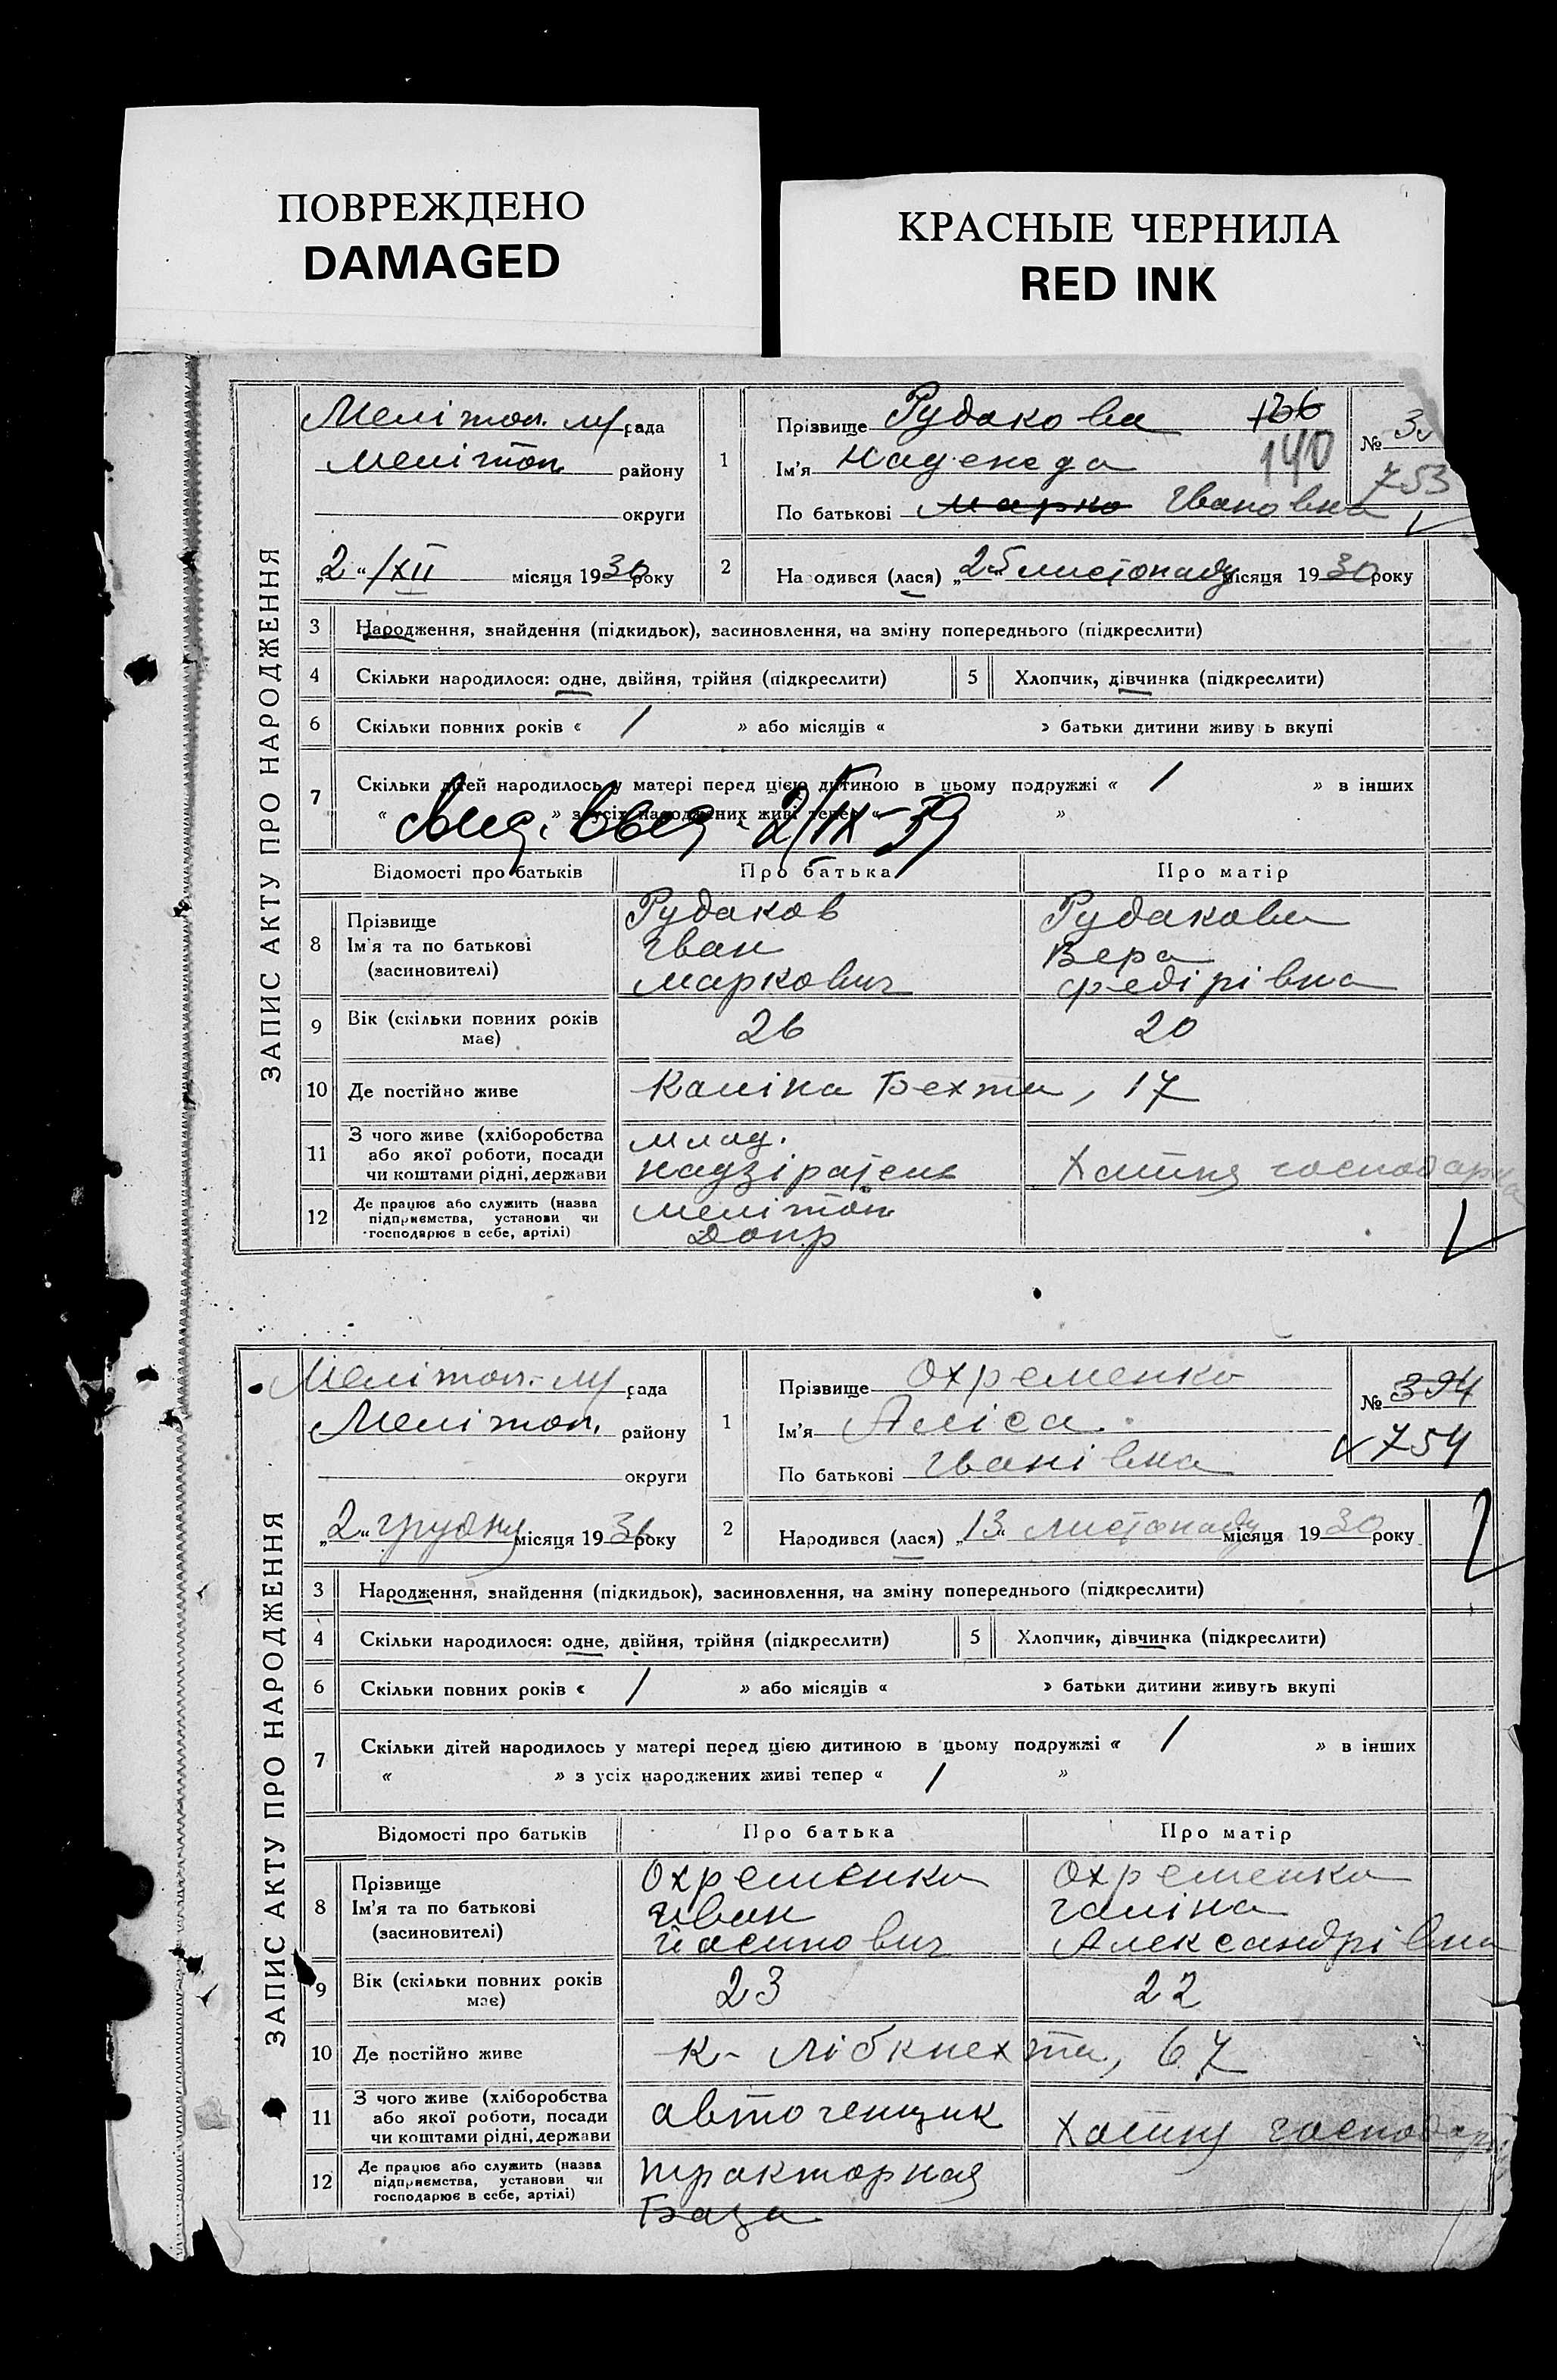 ПОВРЕЖДЕНО
DAMAGED
КРАСНЫЕ ЧЕРНИЛА
RED INK
ЗАПИС АКТУ ПРО НАРОДЖЕННЯ
Мелітоп. м/рада
Мелітоп району
округи
„2“/XII місяця 1930 року
1 Прізвище Рудакова 136
140
Ім'я Надежда
По батькові Марко Івановна
№ 3
753
2 На одився (лася) „25 листопаду місяця 1930 року
3 Народження, знайдення (підкидьок), засиновлення, на зміну попереднього (підкреслити)
4 Скільки народилося: одне, двійня, трійня (підкреслити) 5 Хлопчик, дівчинка (підкреслити)
6 Скільки повних років « / » або місяців « » батьки дитини живу ь вкупі
7 Скільки дітей народилось у матері перед цією дитиною в цьому подружжі « / » в інших
« » з усіх народжених живі тепер « »
2/IX-39
Відомості про батьків Про батька Про матір
8 Прізвище Рудаков Рудакова
Ім'я та по батькові Іван Вера
(засновителі) Маркович Федірівна
9 Вік (скільки повних років має) 26 20
10 Де постійно живе Каліна Бехта, 17
11 З чого живе (хліборобства або якої роботи, посади чи коштами рідні, держави Млад. надзіратель Хатня господарка
12 Де працює або служить (назва підприємства, установи чи господарює в себе, артілі) Мелітоп Допр
ЗАПИС АКТУ ПРО НАРОДЖЕННЯ
Мелітоп. м/рада
Мелітоп. району
округи
„2“ грудну місяця 1930 року
1 Прізвище Охременко
Ім'я Аліса.
По батькові Іванівна
№ 394
754
2 Народився (лася) „13“ листопаду місяця 1930 року
3 Народження, знайдення (підкидьок), засиновлення, на зміну попереднього (підкреслити)
4 Скільки народилося: одне, двійня, трійня (підкреслити) 5 Хлопчик, дівчинка (підкреслити)
6 Скільки повних років « / » або місяців « » батьки дитини живуть вкупі
7 Скільки дітей народилось у матері перед цією дитиною в цьому подружжі « / » в інших
« » з усіх народжених живі тепер « / »
Відомості про батьків Про батька Про матір
8 Прізвище Охременко Охременко
Ім'я та по батькові Іван Галіна
(засиновителі) Йосипович Александрівна
9 Вік (скільки повних років має) 23 22
10 Де постійно живе К- Лібкнехта, 67
11 З чого живе (хліборобства або якої роботи, посади чи коштами рідні, держави автогенщик Хатня господарка
12 Де працює або служить (назва підприємства, установи чи господарює в себе, артілі) тракторная
База